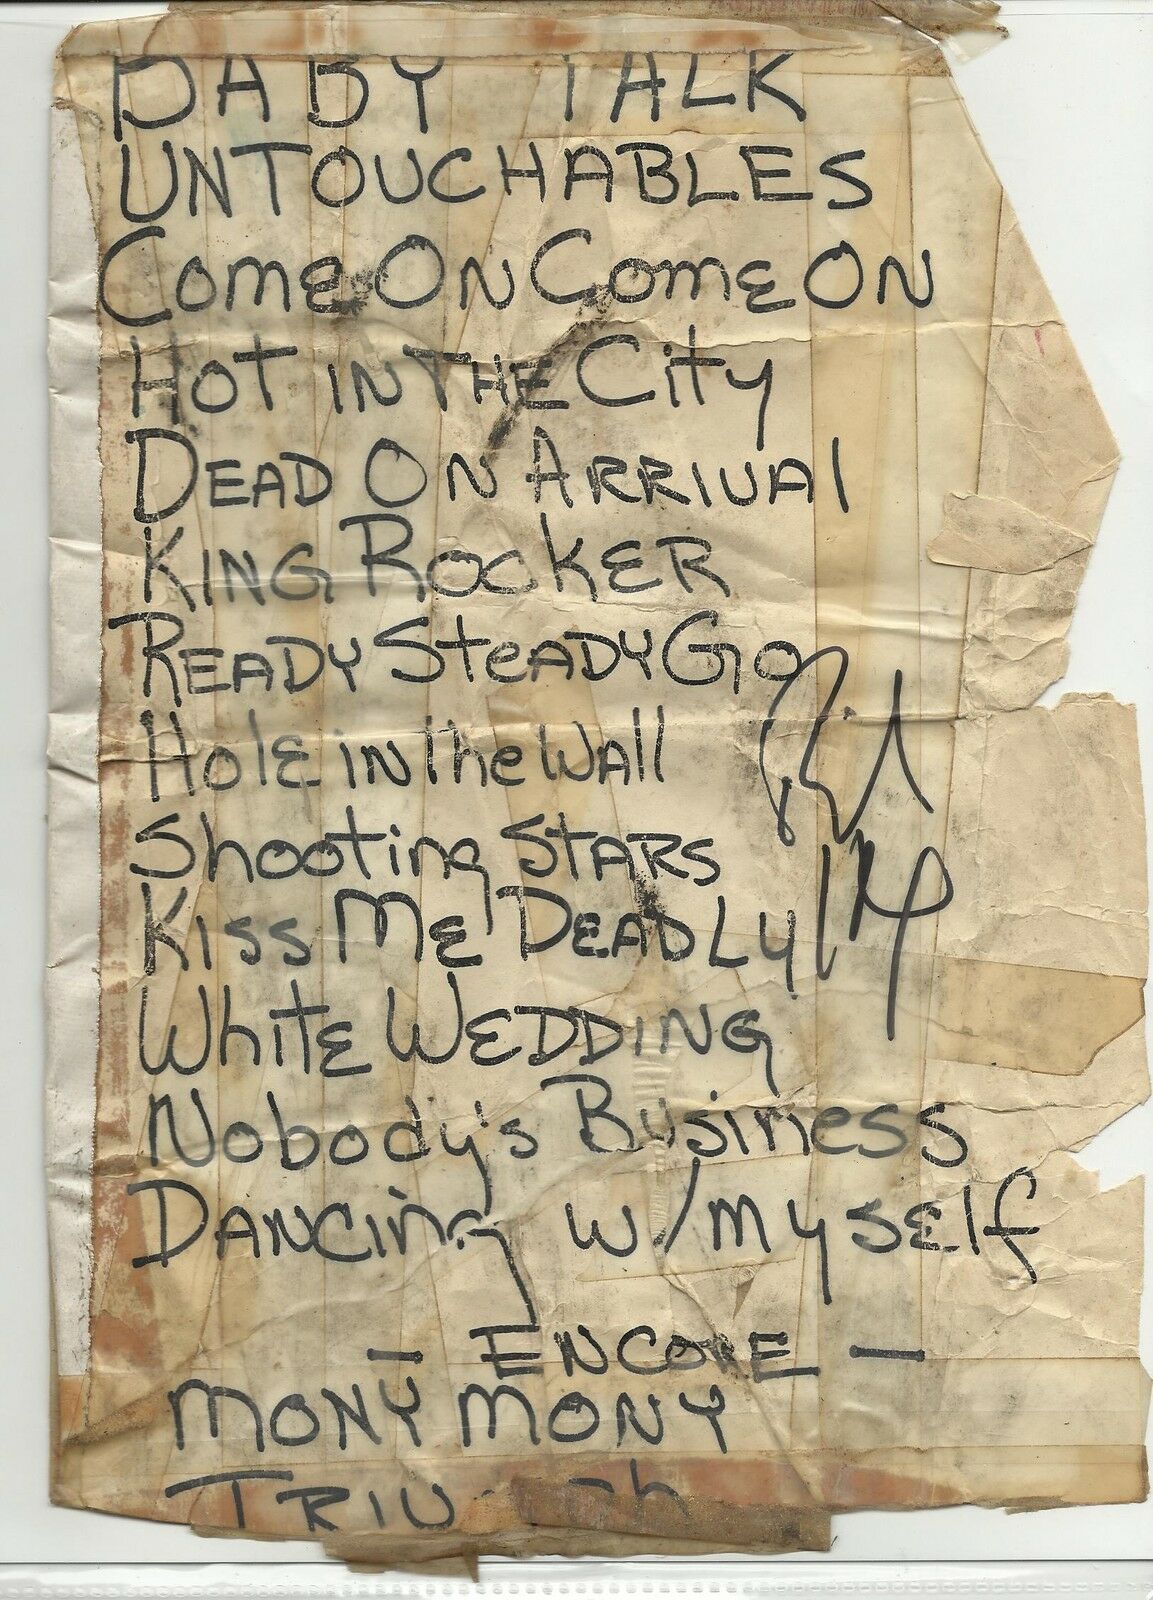 BABY TALK
UNTOUCHABLES
COME ON COME ON
HOT IN THE CITY
DEAD ON ARRIVAL
KING ROCKER
READY STEADY GO
Hole in the Wall
Shooting STARS
Kiss Me DEADLY
White WEDDING
Nobody's Business
DANCing w/myself
- ENCORE -
MONY MONY